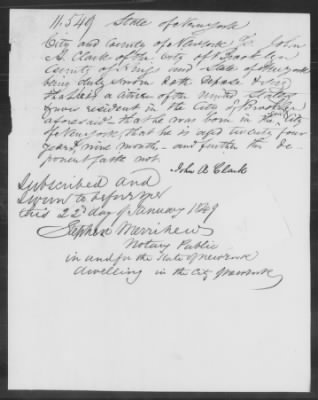 11.549 State of New York
City and County of New York SS John
A. Clark of the City of Brooklyn
County of Kings and State of New York
being duly sworn doth depose & say
that he is a citizen of the United States
resident in the City of Brooklyn
aforesaid that he was born in the City
of New York, that he is aged twenty four
years, nine month, and further this de-
ponent saith not.
John A Clark
Subscribed and
Sworn to before me
this 22d day of January 1849
Stephen Merrihew
Notary Public
in and for the State of New York
dwelling in the City of New York